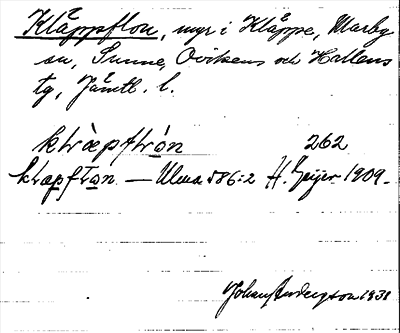 Kläppflon, myr i Kläppe, Marby
sn, Sunne, Ovikens och Hallens
tg, Jämtl. l.
klɑ̀pflón 262
klapflon — Ulma 586:2 H. Geijer 1909.
Johan Anderson 1931